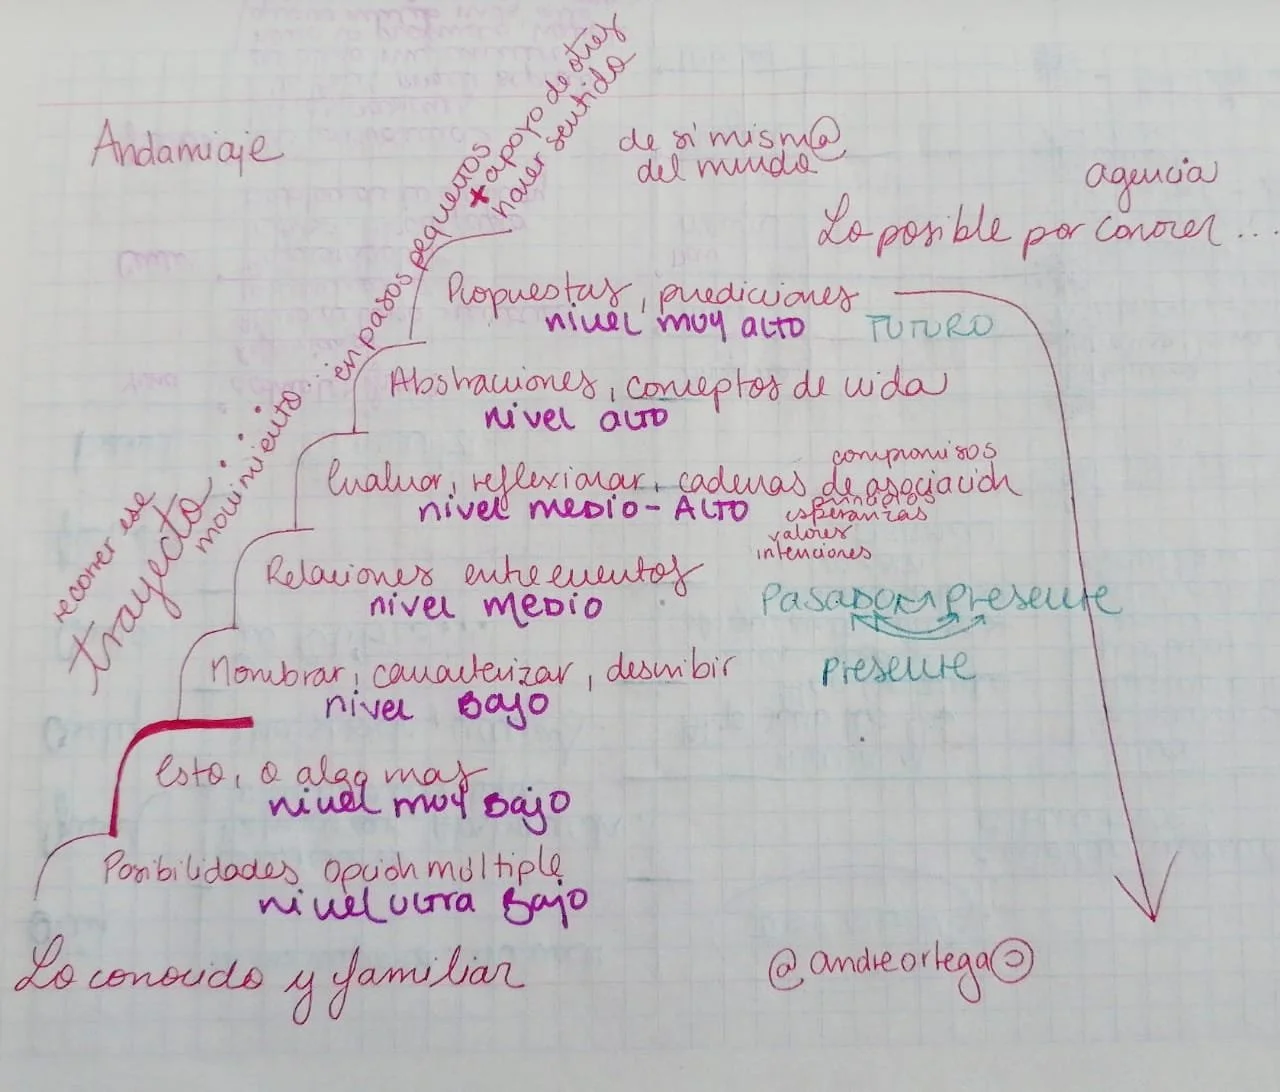 Andamiaje
recorrer ese
trayecto...
movimiento... en pasos pequeños
+ apoyo de otres
hacer sentido
de sí mism@
del mundo
agencia
Lo posible por conocer...
Propuestas, predicciones
nivel muy alto
FUTURO
Abstracciones, conceptos de vida
nivel alto
Evaluar, reflexionar, cadenas de asociación
nivel medio-Alto
compromisos
esperanzas
valores
intenciones
Relaciones entre eventos
nivel medio
Pasado presente
Nombrar, caracterizar, describir
nivel Bajo
Presente
Esto, o algo mas
nivel muy Bajo
Posibilidades opción múltiple
nivel ultra Bajo
Lo conocido y familiar
@andreortega